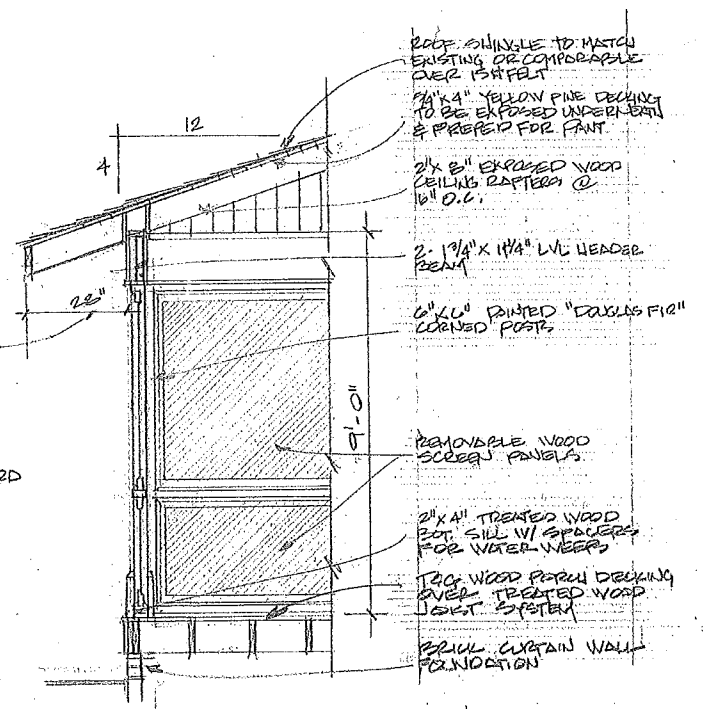 ROOF SHINGLE TO MATCH
EXISTING OR COMPARABLE
OVER 15# FELT
3/4"X4" YELLOW PINE DECKING
TO BE EXPOSED UNDERNEATH
& PREPED FOR PAINT
2"X 8" EXPOSED WOOD
CEILING RAFTERS @
16" O.C.
2- 1 3/4" X 11 1/4" LVL HEADER
BEAM
6"X6" PAINTED "DOUGLAS FIR"
CORNER POSTS
REMOVABLE WOOD
SCREEN PANELS
2"X4" TREATED WOOD
BOT. SILL W/ SPACERS
FOR WATER WEEPS
T&G WOOD PORCH DECKING
OVER TREATED WOOD
JOIST SYSTEM
BRICK CURTAIN WALL
FOUNDATION
12
4
9'-0"
RD